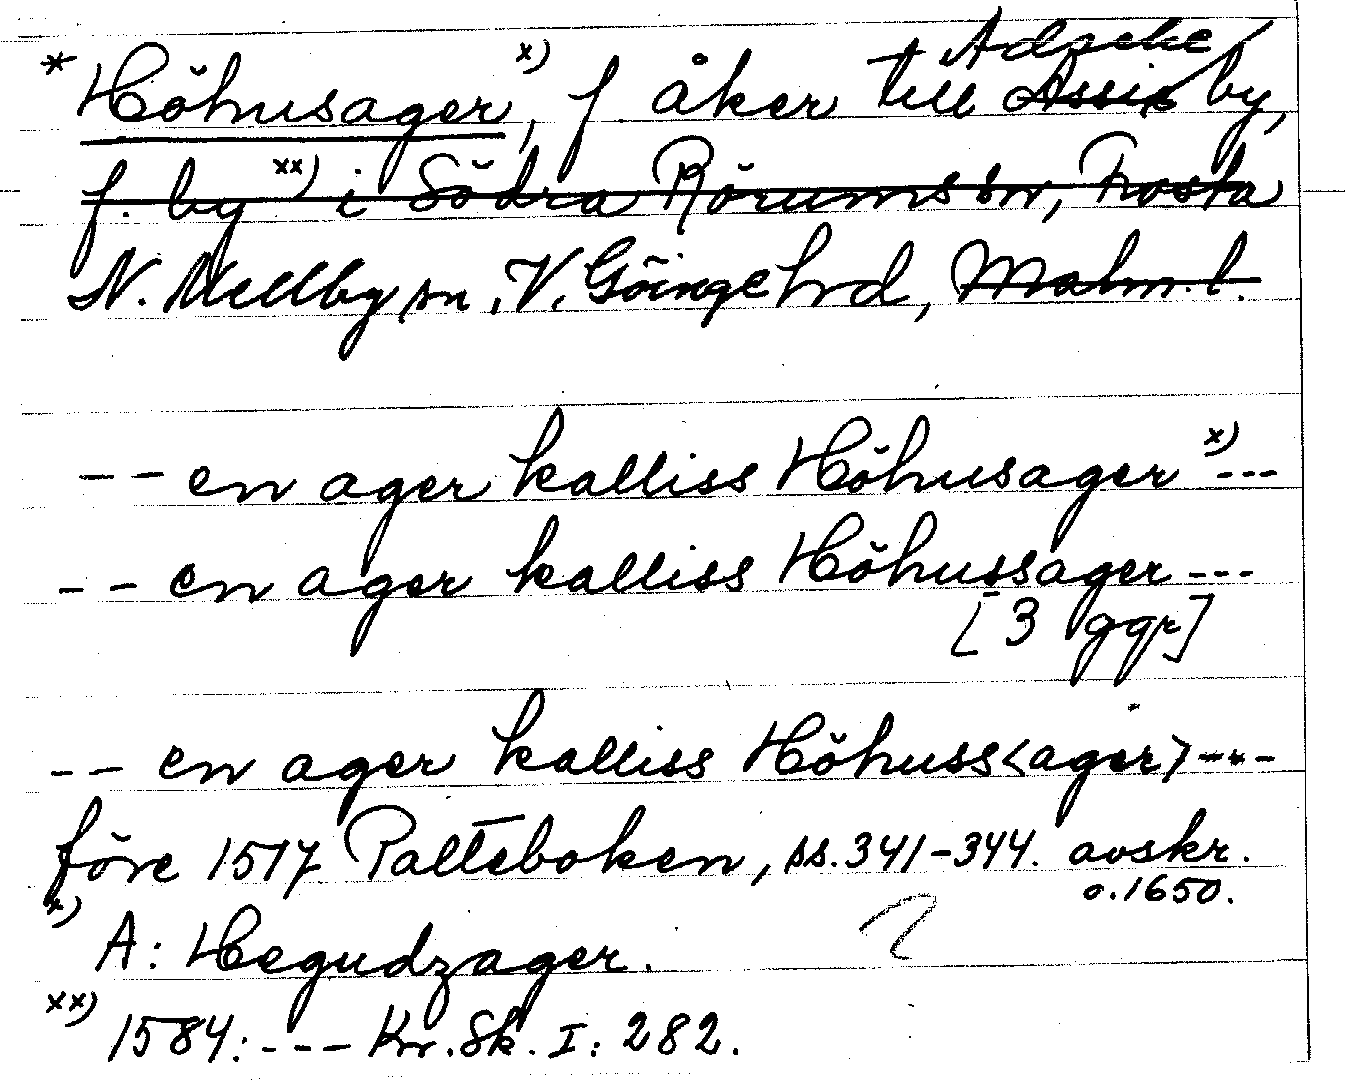 * Höhusager x), f åker till Adseke by,
f. by xx) i Södra Rörums sn, Frosta
N. Mellby sn, V. Göinge hrd, Malm. l.
-- en ager kalliss Höhusager x) ---
-- en ager kalliss Höhussager ---
[3 ggr]
-- en ager kalliss Höhuss<ager> ---
före 1517 Palteboken, ss. 341-344. avskr.
o. 1650.
x) A: Hegudzager.
xx) 1584: --- Kr. Sk. I: 282.